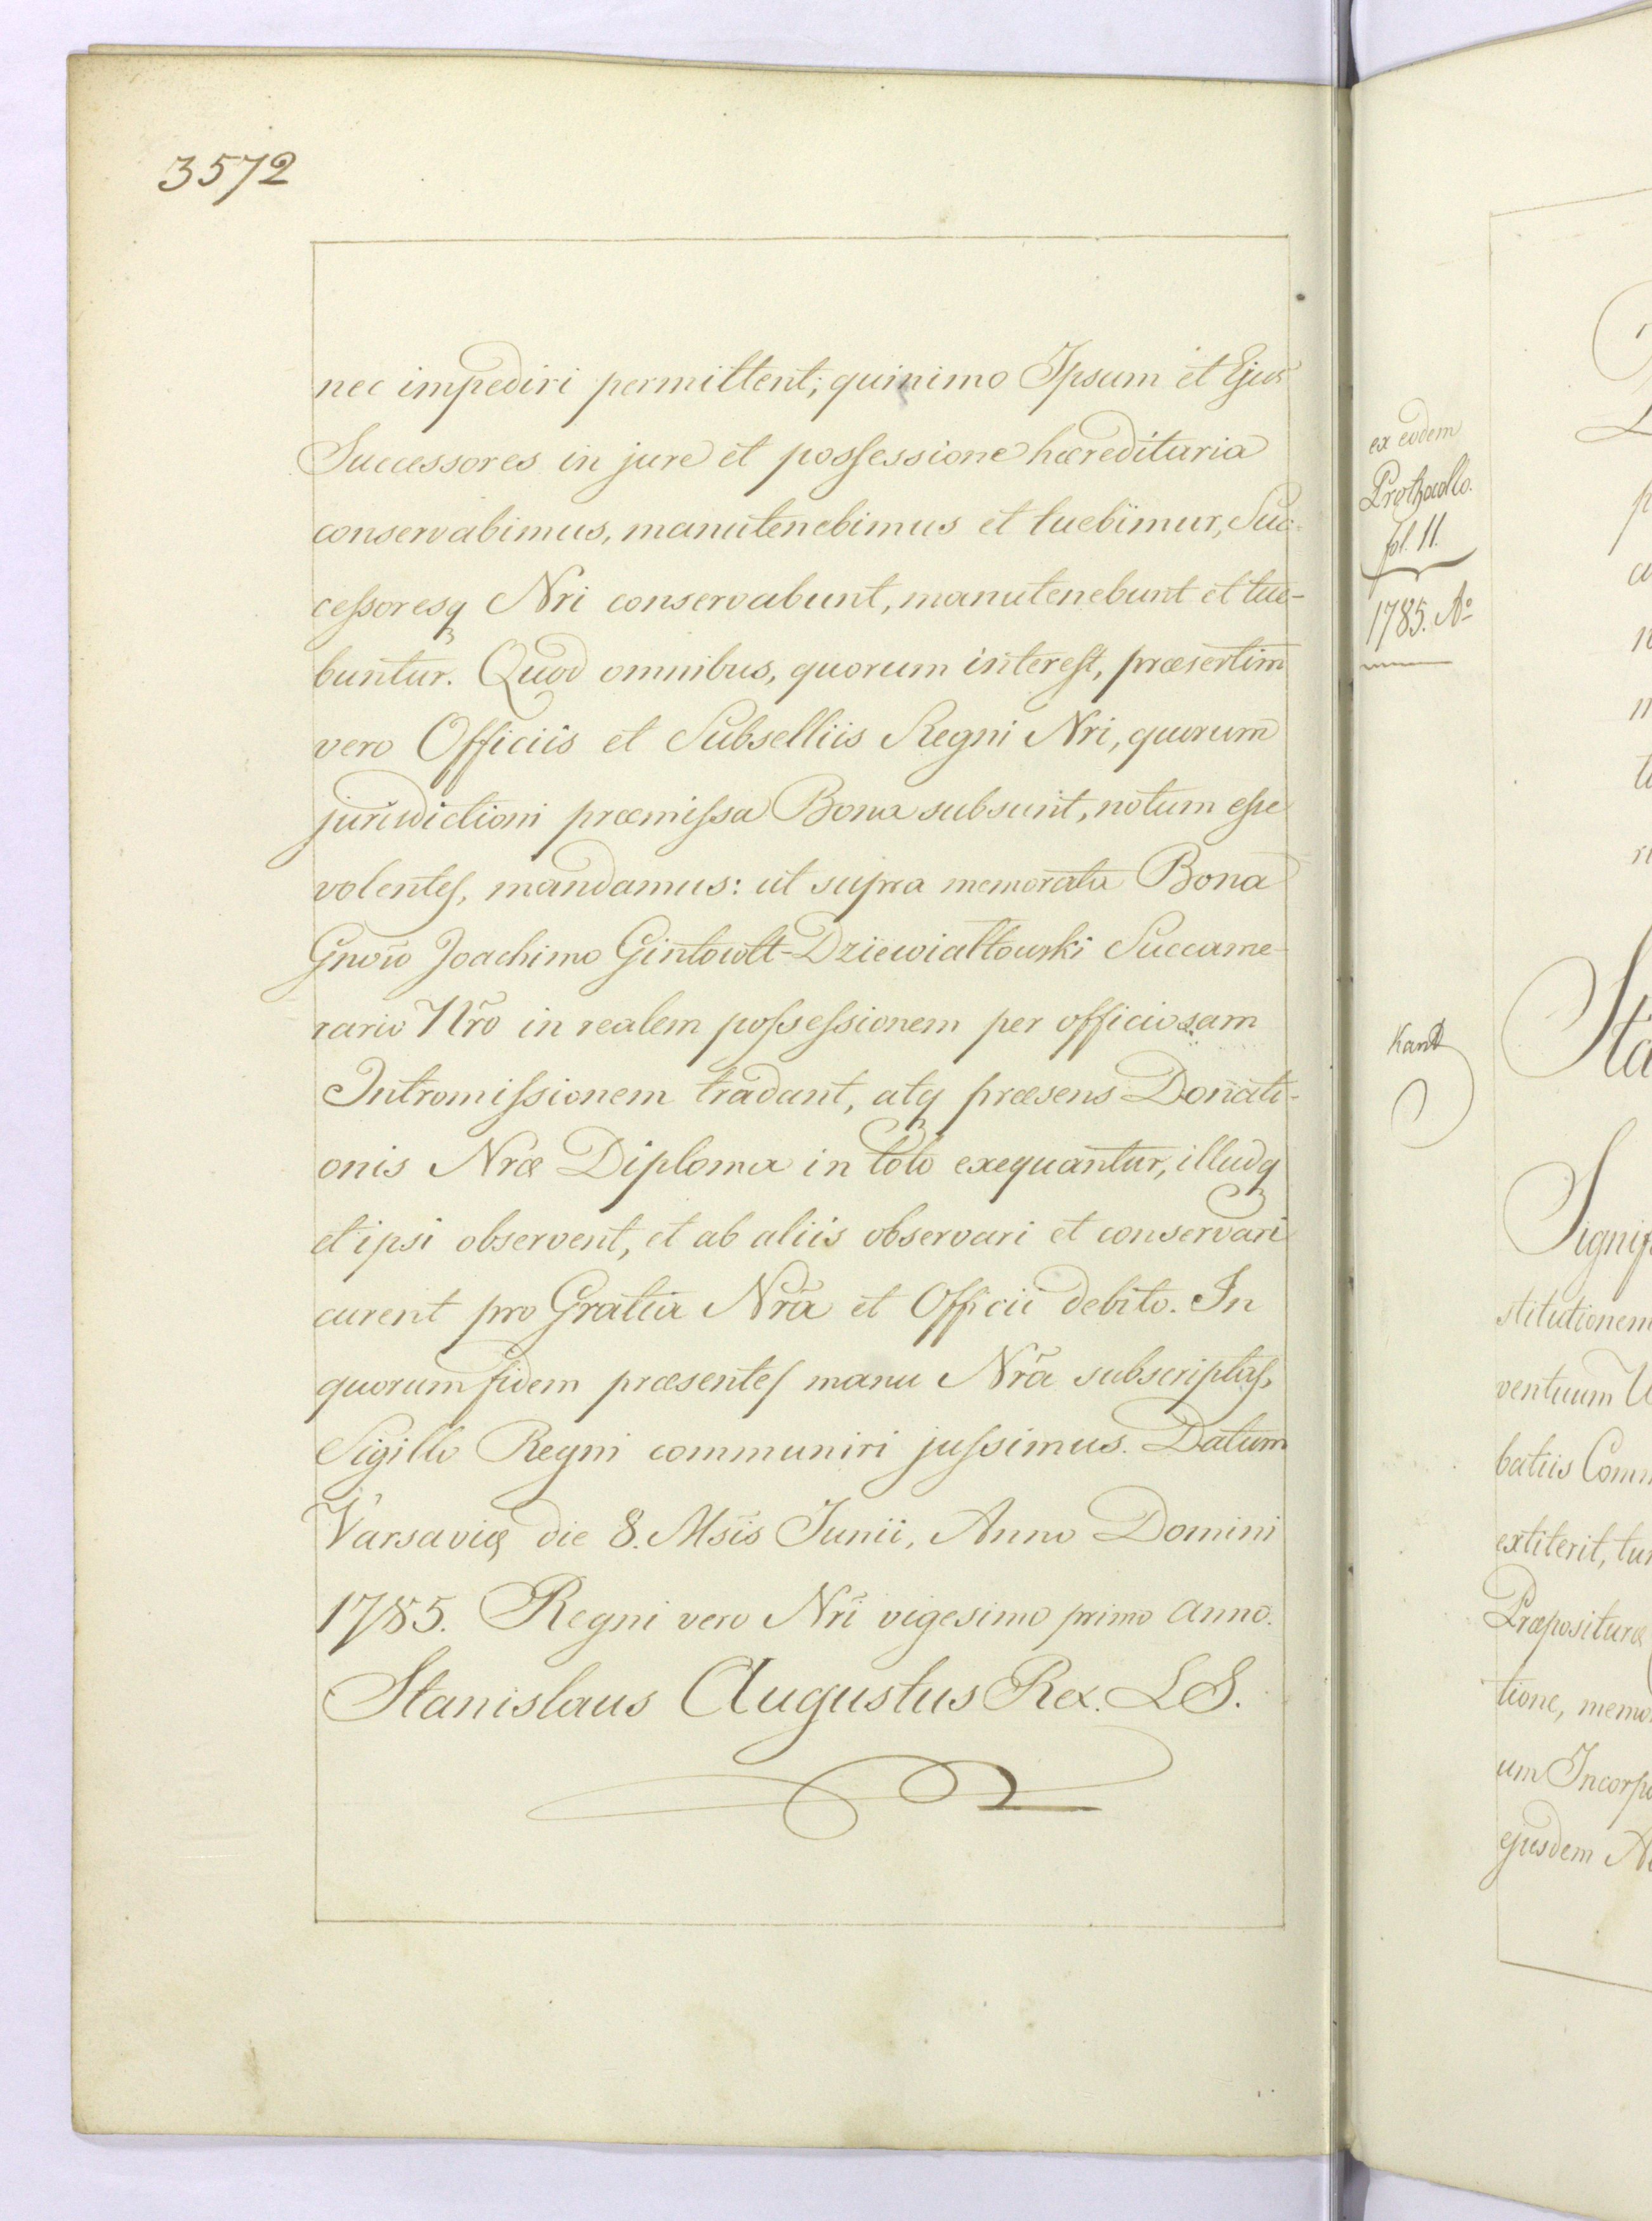 3572
nec impediri permittent; quinimo Ipsum et Ejus
Successores in jure et possessione hæreditaria
conservabimus, manutenebimus et tuebimur, Suc-
cessoresq Nri conservabunt, manutenebunt et tue-
buntur. Quod omnibus, quorum interest, præsertim
vero Officiis et Subselliis Regni Nri, quorum
jurisdictioni præmissa Bona subsunt, notum esse
volentes, mandamus: ut supra memorata Bona
Gnoso Joachimo Gintowtt-Dziewiałtowski Succame-
rario Nro in realem possessionem per officiosam
Intromissionem tradant, atq præsens Donati-
onis Nræ Diploma in toto exequantur, illudq
et ipsi observent, et ab aliis observari et conservari
curent pro Gratia Nra et Officii debito. In
quorum fidem præsentes manu Nra subscriptas,
Sigillo Regni communiri jussimus. Datum
Varsaviæ die 8. Msis Junii, Anno Domini
1785. Regni vero Nri vigesimo primo anno.
Stanislaus Augustus Rex. LS.
ex eodem
fol. 11.
1785. Aº
Kand
Sta
Signif
stitutionem
ventuum
batiis Comm
extiterit,
Præposituræ
tione, memo
um Incorpo
ejusdem